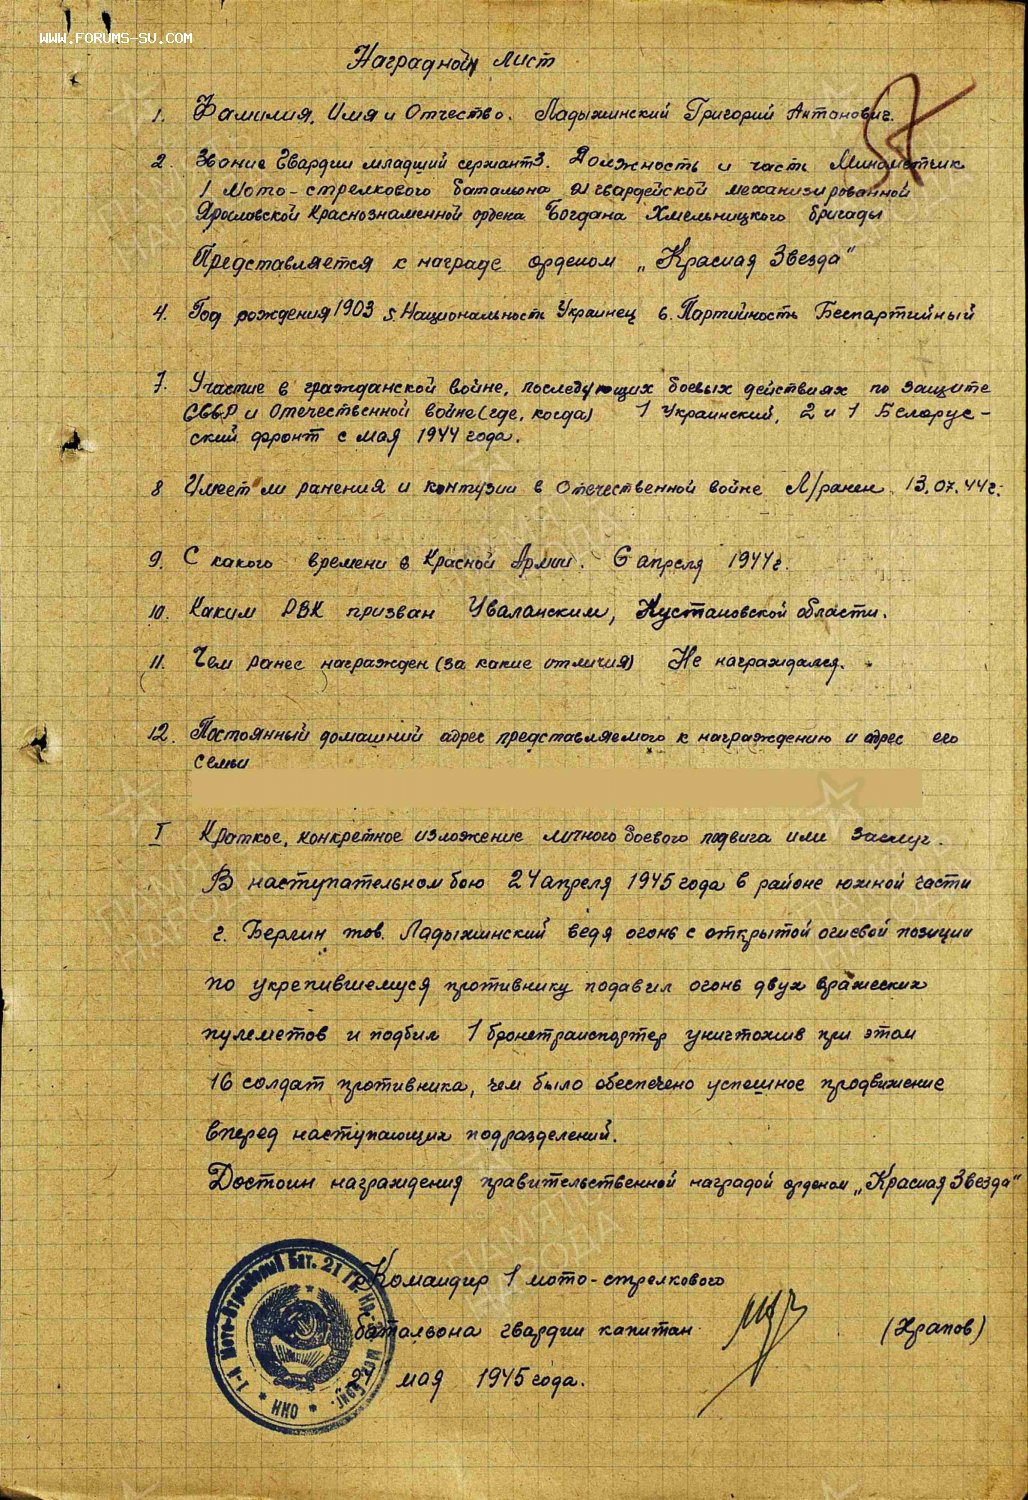 WWW.FORUMS-SU.COM
Наградной лист
57
1. Фамилия, Имя и Отчество. Ладыжинский Григорий Антонович.
2. Звание Гвардии младший сержант 3. Должность и часть Минометчик
1 мото-стрелкового батальона 21 гвардейской механизированной
Ярославской Краснознаменной ордена Богдана Хмельницкого бригады
Представляется к награде орденом „Красная Звезда"
4. Год рождения 1903 5. Национальность Украинец 6. Партийность Беспартийный
7. Участие в гражданской войне, последующих боевых действиях по защите
СССР и Отечественной войне (где, когда) 1 Украинский, 2 и 1 Белорус-
ский фронт с мая 1944 года.
8 Имеет ли ранения и контузии в Отечественной войне Л/ранен 13.07.44г.
9. С какого времени в Красной Армии. 6 апреля 1944г.
10. Каким РВК призван Уваланским, Кустановской области.
11. Чем ранее награжден (за какие отличия) Не награждался.
12. Постоянный домашний адрес представляемого к награждению и адрес его
семьи
I Краткое, конкретное изложение личного боевого подвига или заслуг.
В наступательном бою 24 апреля 1945 года в районе южной части
г. Берлин тов. Ладыжинский ведя огонь с открытой огневой позиции
по укрепившемуся противнику подавил огонь двух вражеских
пулеметов и подбил 1 бронетранспортер уничтожив при этом
16 солдат противника, чем было обеспечено успешное продвижение
вперед наступающих подразделений.
Достоин награждения правительственной наградой орденом „Красная Звезда"
Командир 1 мото-стрелкового
батальона гвардии капитан (Храпов)
мая 1945 года.
1-й Мото-Стрелковый Бат. 21 Гв. Кр. Мех. Бриг. * НКО *
ПАМЯТЬ НАРОДА